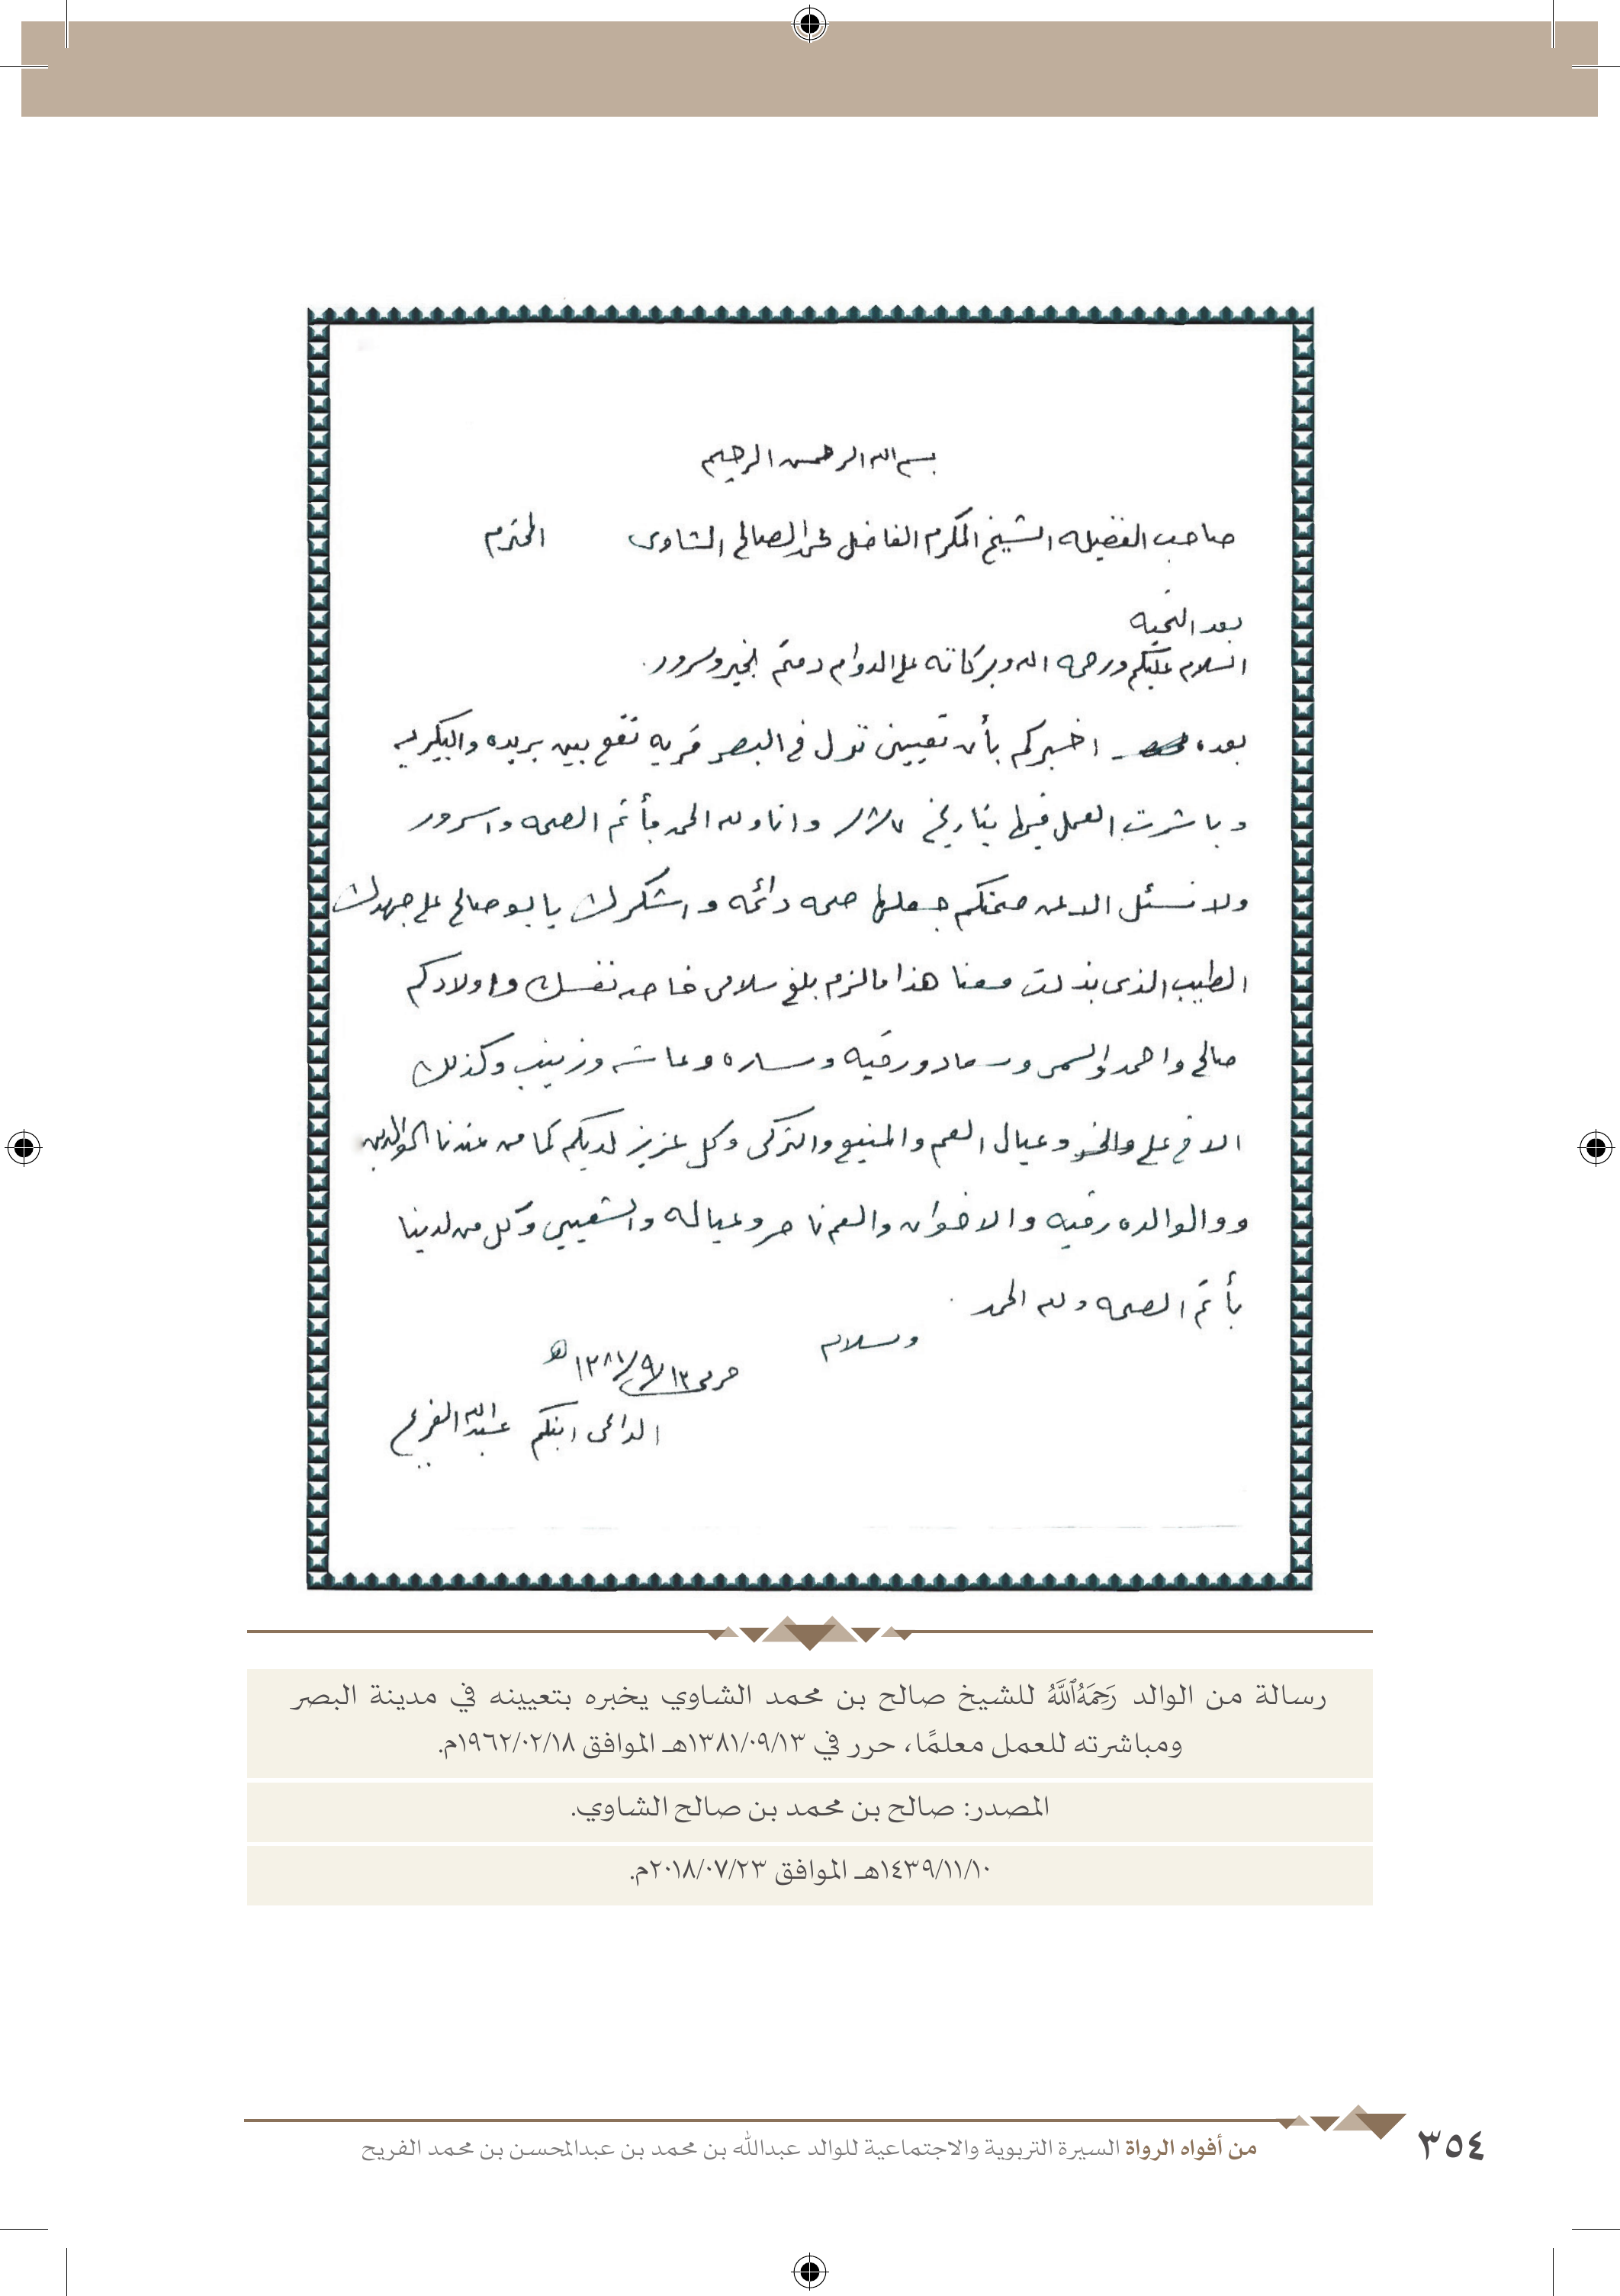 بسم الله الرحمن الرحيم
صاحب الفضيله الشيخ المكرم الفاضل محمد الصالح الشاوى المحترم
بعد التحيه
السلام عليكم ورحمه الله وبركاته على الدوام دمتم بخير وسرور.
بعده اخبركم بأن تعيينى نزل في البصر قريه تقع بين بريده والبكيريه
وباشرت العمل فيها بتاريخ ٨/٧ وانا ولله الحمد بأتم الصحه واسرور
ولا نسئل الا عن صحتكم جعلها صحه دائمه واشكرك يا بو صالح على جهدك
الطيب الذى بذلت معنا هذا مالزم بلغ سلامى خاصه نفسك واولادكم
صالح واحمد ورقيه وساره وعاشه وزينب وكذلك
الاخ على وعيال العم والمنيع والتركى وكل عزيز لديكم كما من عندنا الوالدين
ووالوالده رقيه والاخوان والعم ناصر وعياله والشعيبي وكل من لدينا
بأتم الصحه ولله الحمد.
وسلام
حرر فى ١٣/٩/١٣٨١هـ
الداعى ابنكم عبدالله الفريح
رسالة من الوالد رَحِمَهُ ٱللَّهُ للشيخ صالح بن محمد الشاوي يخبره بتعيينه في مدينة البصر
ومباشرته للعمل معلمًا، حرر في ١٣٨١/٠٩/١٣هـ الموافق ١٩٦٢/٠٢/١٨م.
المصدر: صالح بن محمد بن صالح الشاوي.
١٤٣٩/١١/١٠هـ الموافق ٢٠١٨/٠٧/٢٣م.
من أفواه الرواة السيرة التربوية والاجتماعية للوالد عبدالله بن محمد بن عبدالمحسن بن محمد الفريح
٣٥٤